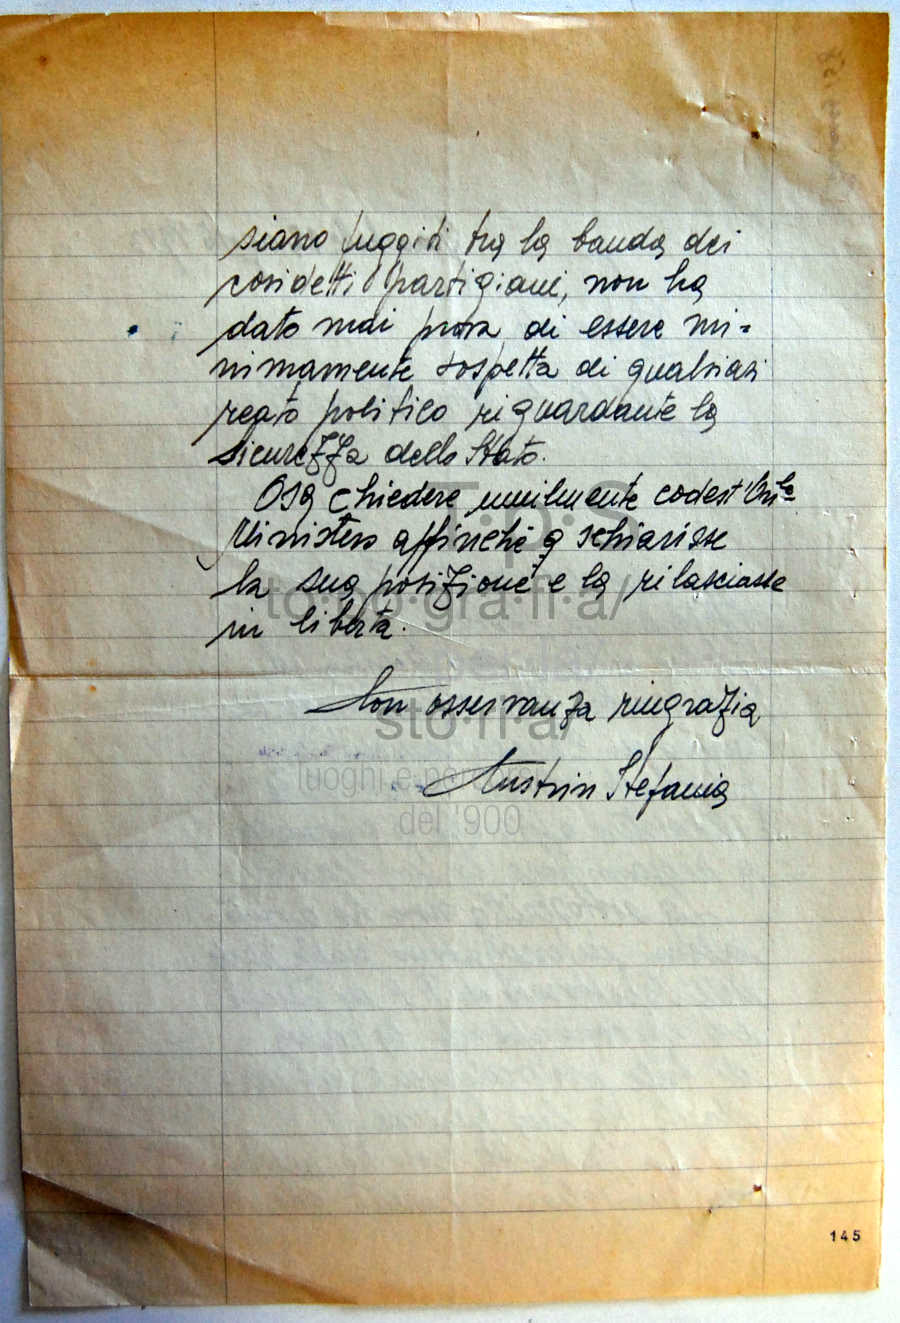 siano fuggiti tra la banda dei
cosidetti partigiani, non ha
dato mai prova di essere mi=
nimamente sospetta di qualsiasi
reato politico riguardante la
sicurezza dello Stato.
Osa chiedere umilmente codest'On.le
Ministero affinché schiarisse
la sua posizione e la rilasciasse
in libertà.
Con osservanza ringrazia
Austrin Stefania
T·p·S
topo·gra·fi·a/
sto·ri·a/
luoghi e
del '900
145